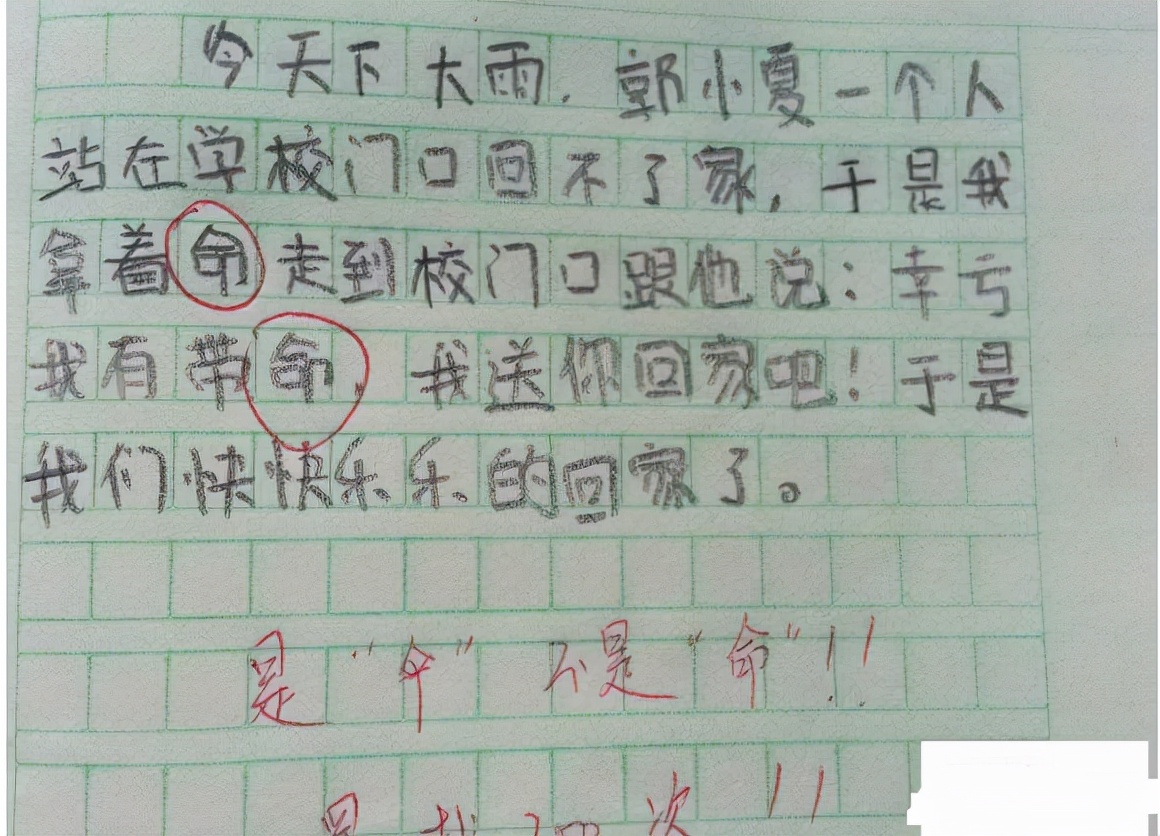 今天下大雨，郭小夏一个人
站在学校门口回不了家，于是我
拿着命走到校门口跟他说：幸亏
我有带命 我送你回家吧！于是
我们快快乐乐的回家了。
是“伞”不是“命”！！
次！！